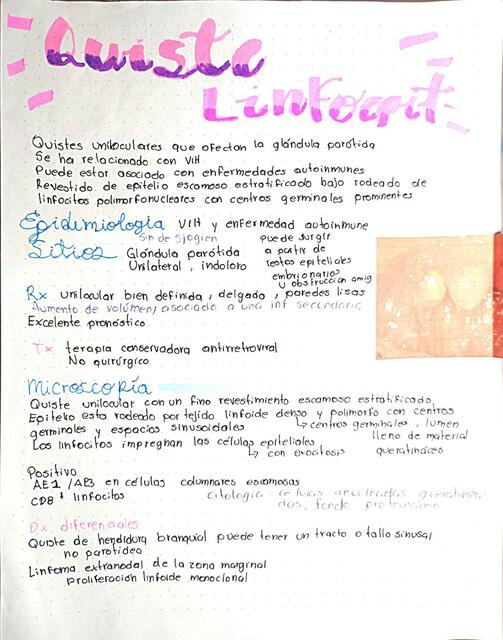 Quiste
Linfoepit
Quistes uniloculares que afectan la glándula parótida
Se ha relacionado con VIH
Puede estar asociado con enfermedades autoinmunes
Revestido de epitelio escamoso estratificado bajo rodeado de
linfocitos polimorfonucleares con centros germinales prominentes
Epidemiología VIH y enfermedad autoinmune
Sin de Sjogren
Sitios Glándula parótida
Unilateral, indoloro
puede surgir
a partir de
restos epiteliales
embrionarios
u obstrucción amig
Rx unilocular bien definida, delgado, paredes lisas
Aumento de volumen, asociado a una inf secundaria
Excelente pronóstico
Tx terapia conservadora antirretroviral
No quirúrgico
Microscopía
Quiste unilocular con un fino revestimiento escamoso estratificado,
Epitelio esta rodeado por tejido linfoide denso y polimorfo con centros
germinales y espacios sinusoidales
centros germinales, lumen
lleno de material
queratináceo
Los linfocitos impregnan las células epiteliales
con exocitosis
Positivo
AE1/AE3 en células columnares escamosas
CD8+ linfocitos
citología: células anucleadas queratiniza-
das, fondo proteináceo
Dx diferenciales
Quiste de hendidura branquial puede tener un tracto o tallo sinusal
no parotídeo
Linfoma extranodal de la zona marginal
proliferación linfoide monoclonal